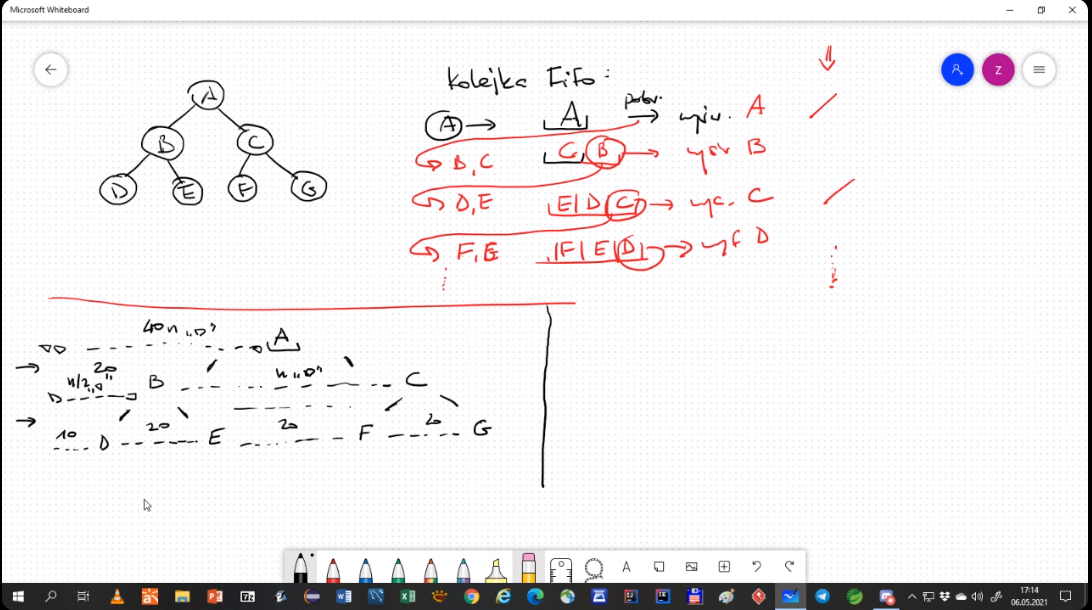 Microsoft Whiteboard
Z
Kolejka FiFo:
A
B C
D E F G
A → A pobr. → wyśw. A
B, C C B → wyśw B
D, E E| D |C → wyś. C
F, G |F| E |D| → wyś D
40 n „D”
A
20
n/2 „D”
B n „D” C
10 D 20 E 20 F 20 G
A
17:14
06.05.2021